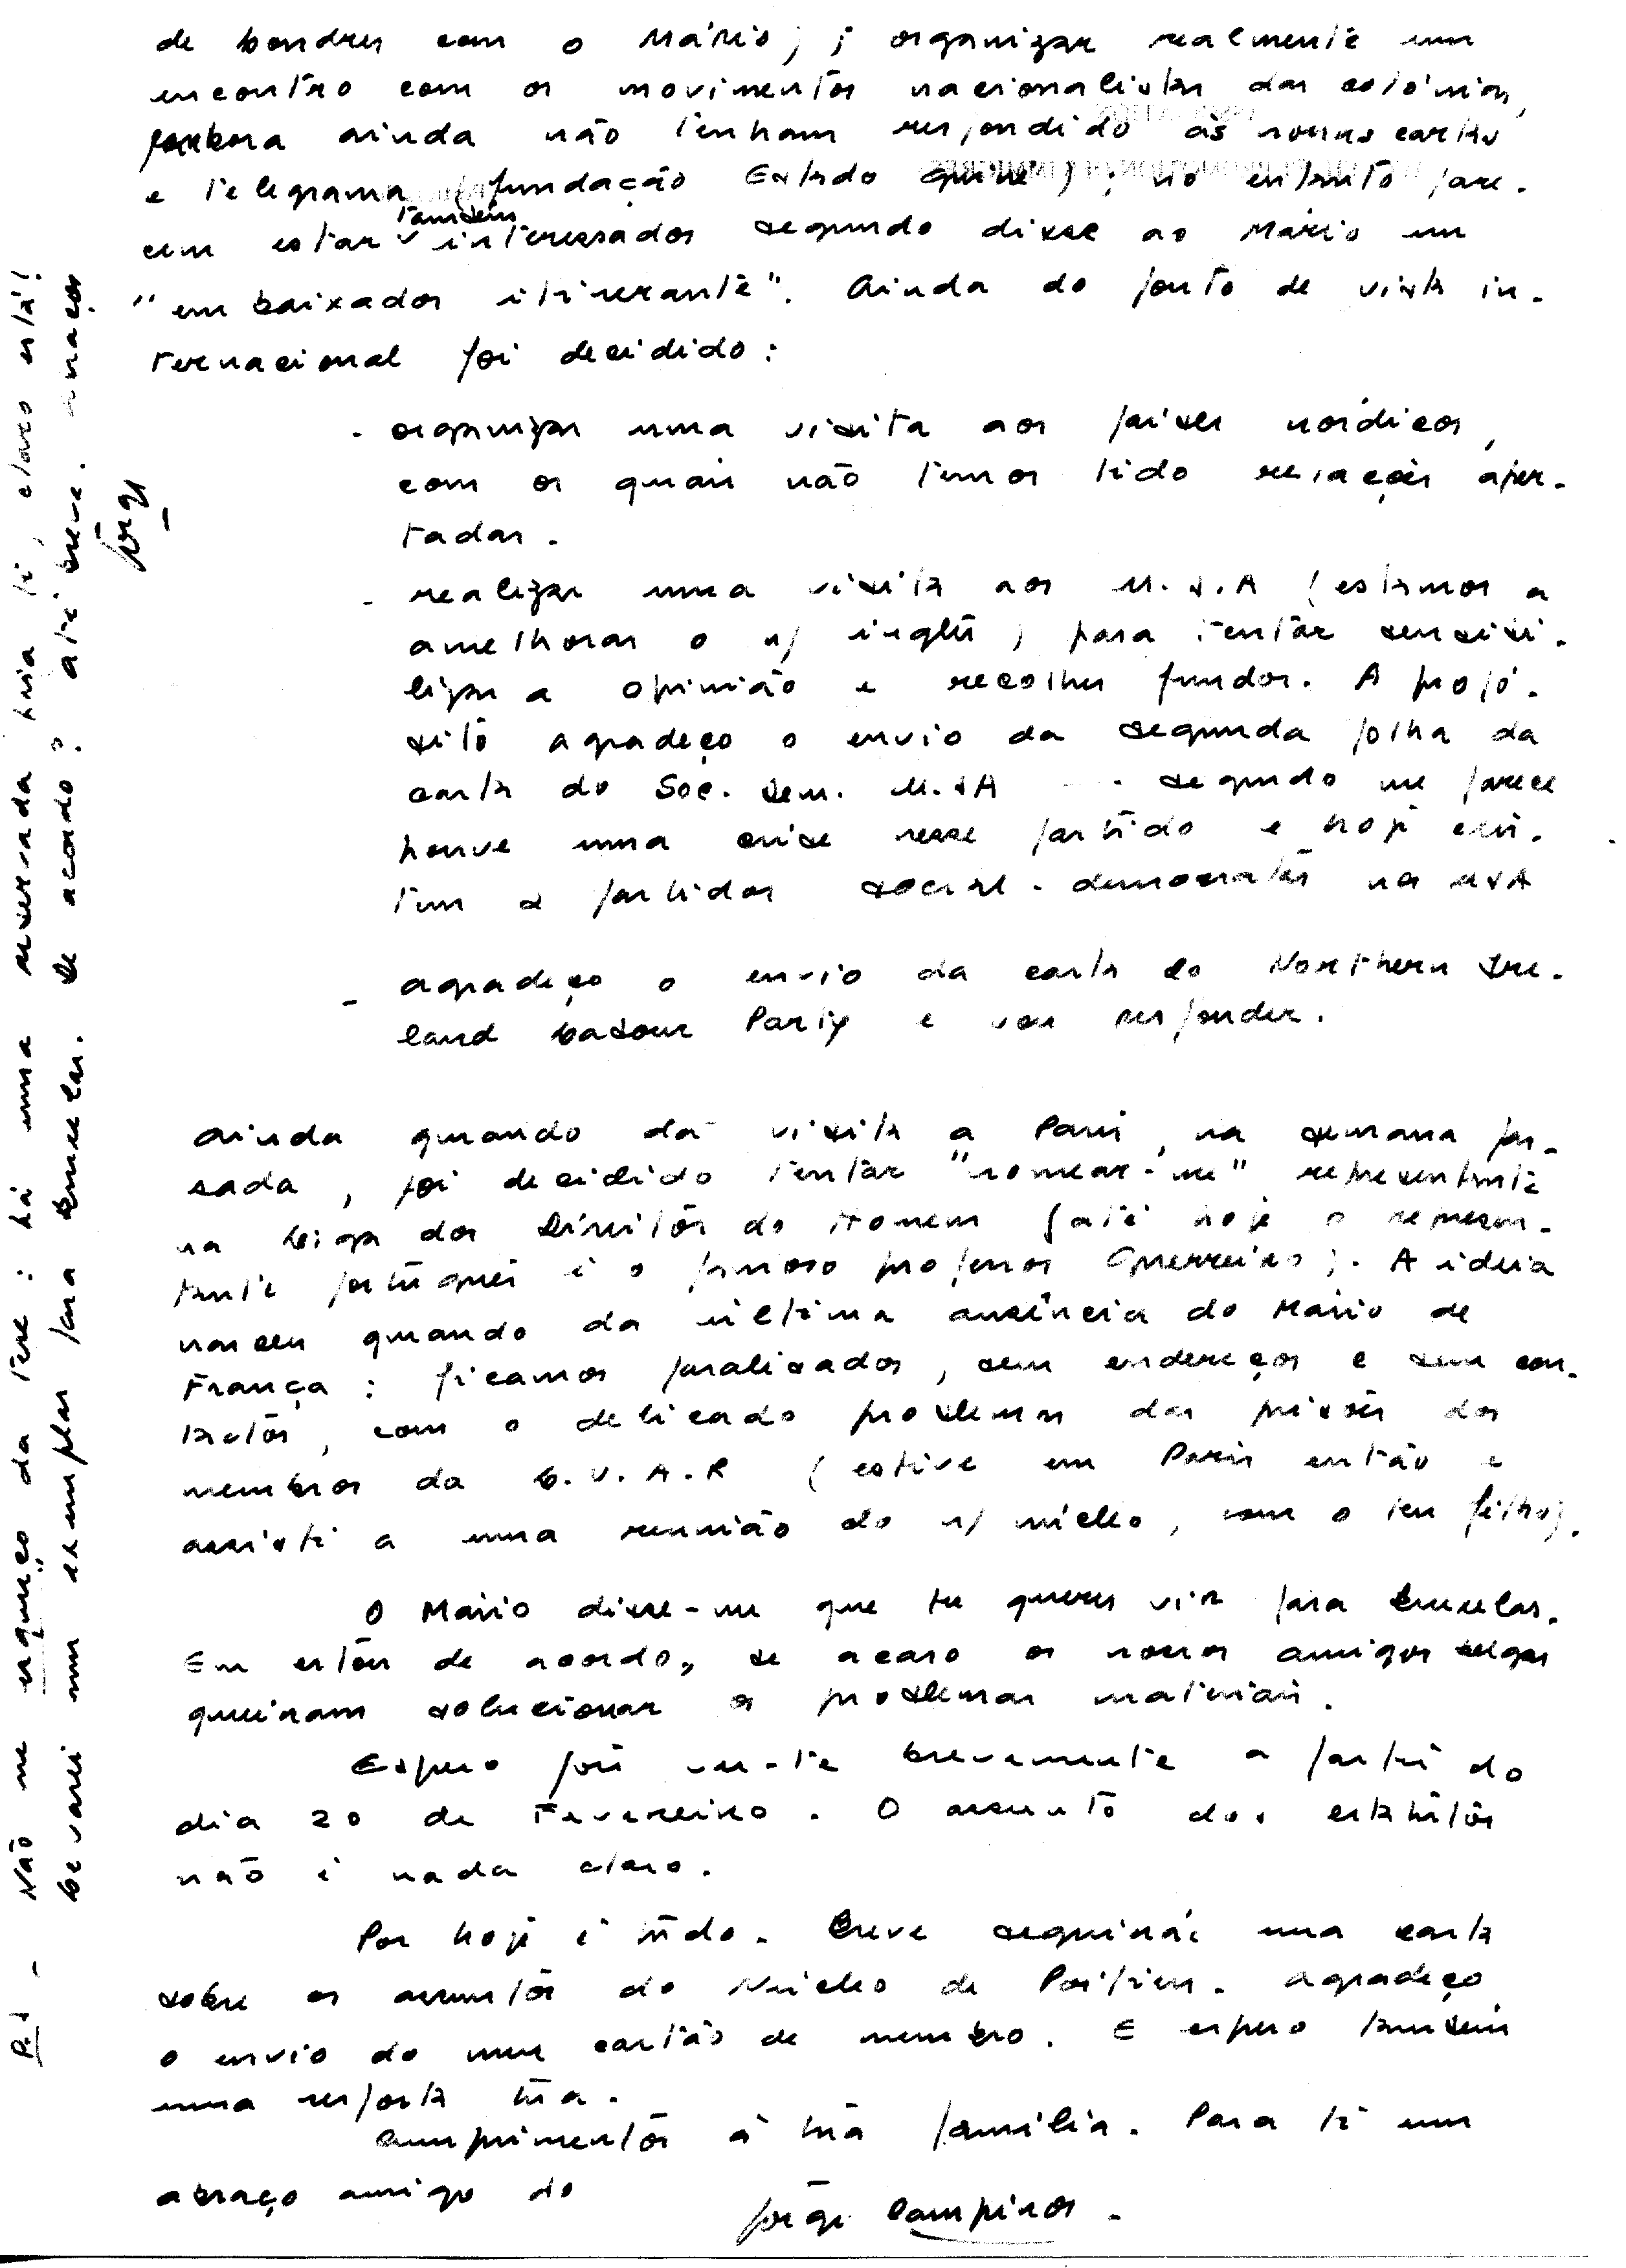 de Londres com o Mário) ; organizar realmente um
encontro com os movimentos nacionalistas das colónias,
embora ainda não tenham respondido às nossas cartas
e telegrama (fundação Estado Guiné) ; no entanto pare-
cem estar também interessados segundo disse ao Mário um
"embaixador itinerante". Ainda do ponto de vista in-
ternacional foi decidido :
- organizar uma visita aos países nórdicos,
com os quais não temos tido relações aper-
tadas.
- realizar uma visita aos U.S.A (estamos a
amelhorar o n/ inglês) para tentar sensibi-
lizar a opinião e recolher fundos. A propó-
sito agradeço o envio da segunda folha da
carta do Soc. Dem. U.SA - segundo me parece
houve uma crise nesse partido e hoje exis-
tem 2 partidos social-democratas nos USA
- agradeço o envio da carta do Northern Ire-
land Labour Party e vou responder.
Ainda quando da visita a Paris, na semana pas-
sada, foi decidido tentar "nomear-me" representante
na Liga dos Direitos do Homem (até hoje o represen-
tante português é o famoso professor Guerreiro). A ideia
nasceu quando da última ausência do Mário de
França : ficamos paralisados, sem endereços e sem con-
tactos, com o delicado problema das prisões dos
membros da L.U.A.R (estive em Paris então e
assisti a uma reunião do n/ núcleo, com o teu filho).
O Mário disse-me que tu queres vir para Bruxelas.
Eu estou de acordo, se acaso os nossos amigos belgas
queiram solucionar os problemas materiais.
Espero pois ver-te brevemente a partir do
dia 20 de Fevereiro. O assunto dos estatutos
não é nada claro.
Por hoje é tudo. Breve seguirá uma carta
sobre os assuntos do Núcleo de Poitiers. Agradeço
o envio do meu cartão de membro. E espero também
uma resposta tua.
Cumprimentos à tua família. Para ti um
abraço amigo do
Jorge Campinos.
P.S - Não me esqueço da tese : há uma reservada para ti, claro está!
Levarei um exemplar para Bruxelas. De acordo? Até breve. Abraços
Jorge